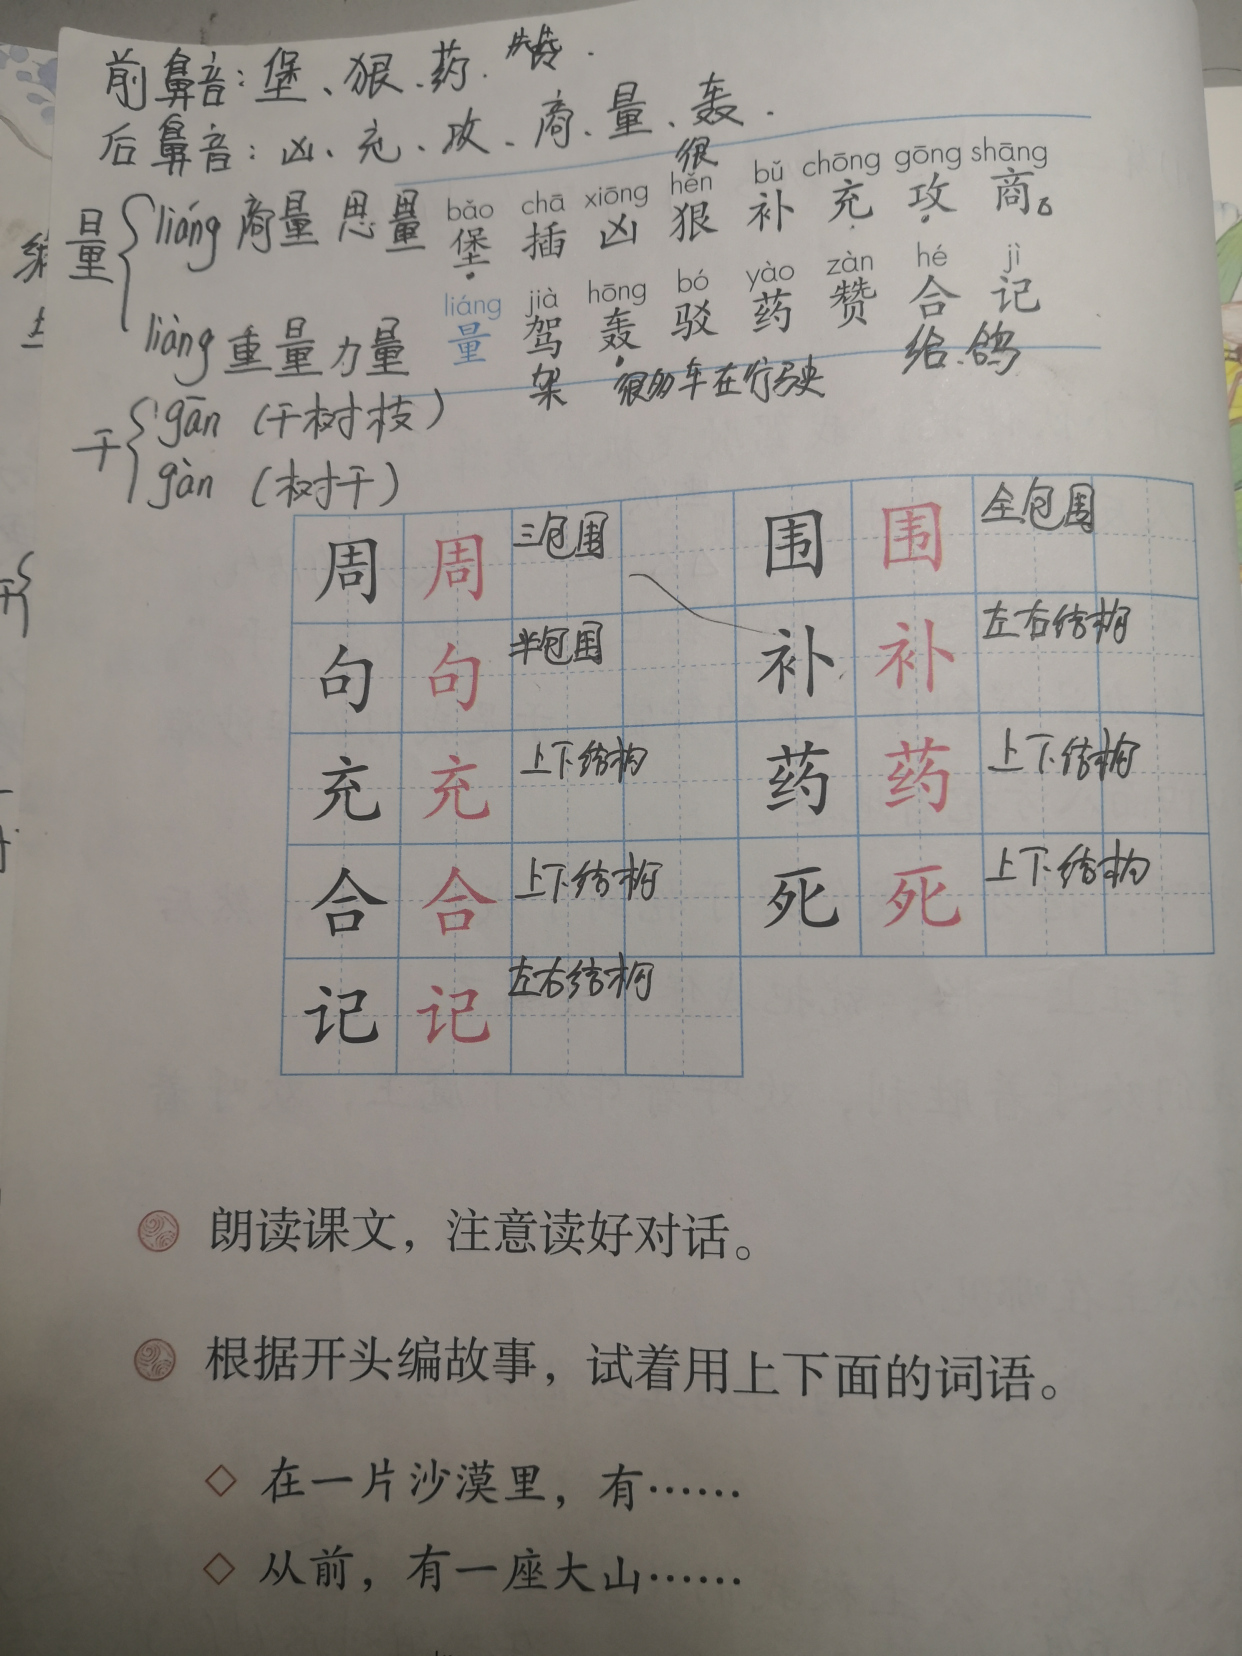 前鼻音：堡、狠、药、
后鼻音：凶、充、攻、商、量、轰.
很
bǎo chā xiōng hěn bǔ chōng gōng shāng
堡 插 凶 狠 补 充 攻 商
liáng jià hōng bó yào zàn hé jì
量 驾 轰 驳 药 赞 合 记
架 很多车在行驶 给 鸽
量 liáng 商量 思量
liàng 重量 力量
干 gān（干树枝）
gàn（树干）
周 周 三包围 围 围 全包围
句 句 半包围 补 补 左右结构
充 充 上下结构 药 药 上下结构
合 合 上下结构 死 死 上下结构
记 记 左右结构
朗读课文，注意读好对话。
根据开头编故事，试着用上下面的词语。
◇ 在一片沙漠里，有……
◇ 从前，有一座大山……